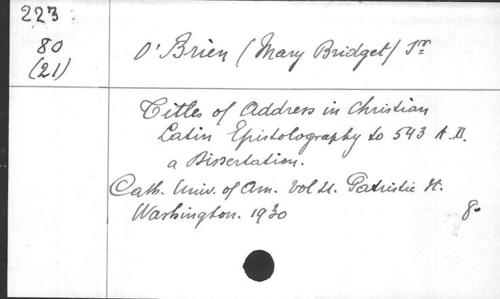 223
80
(21)
O'Brien (Mary Bridget) Sr
Titles of Address in Christian
Latin Epistolography to 543 A.D.
a Dissertation.
Cath. Univ. of Am. Vol 21. Patristic St.
Washington. 1930
8o